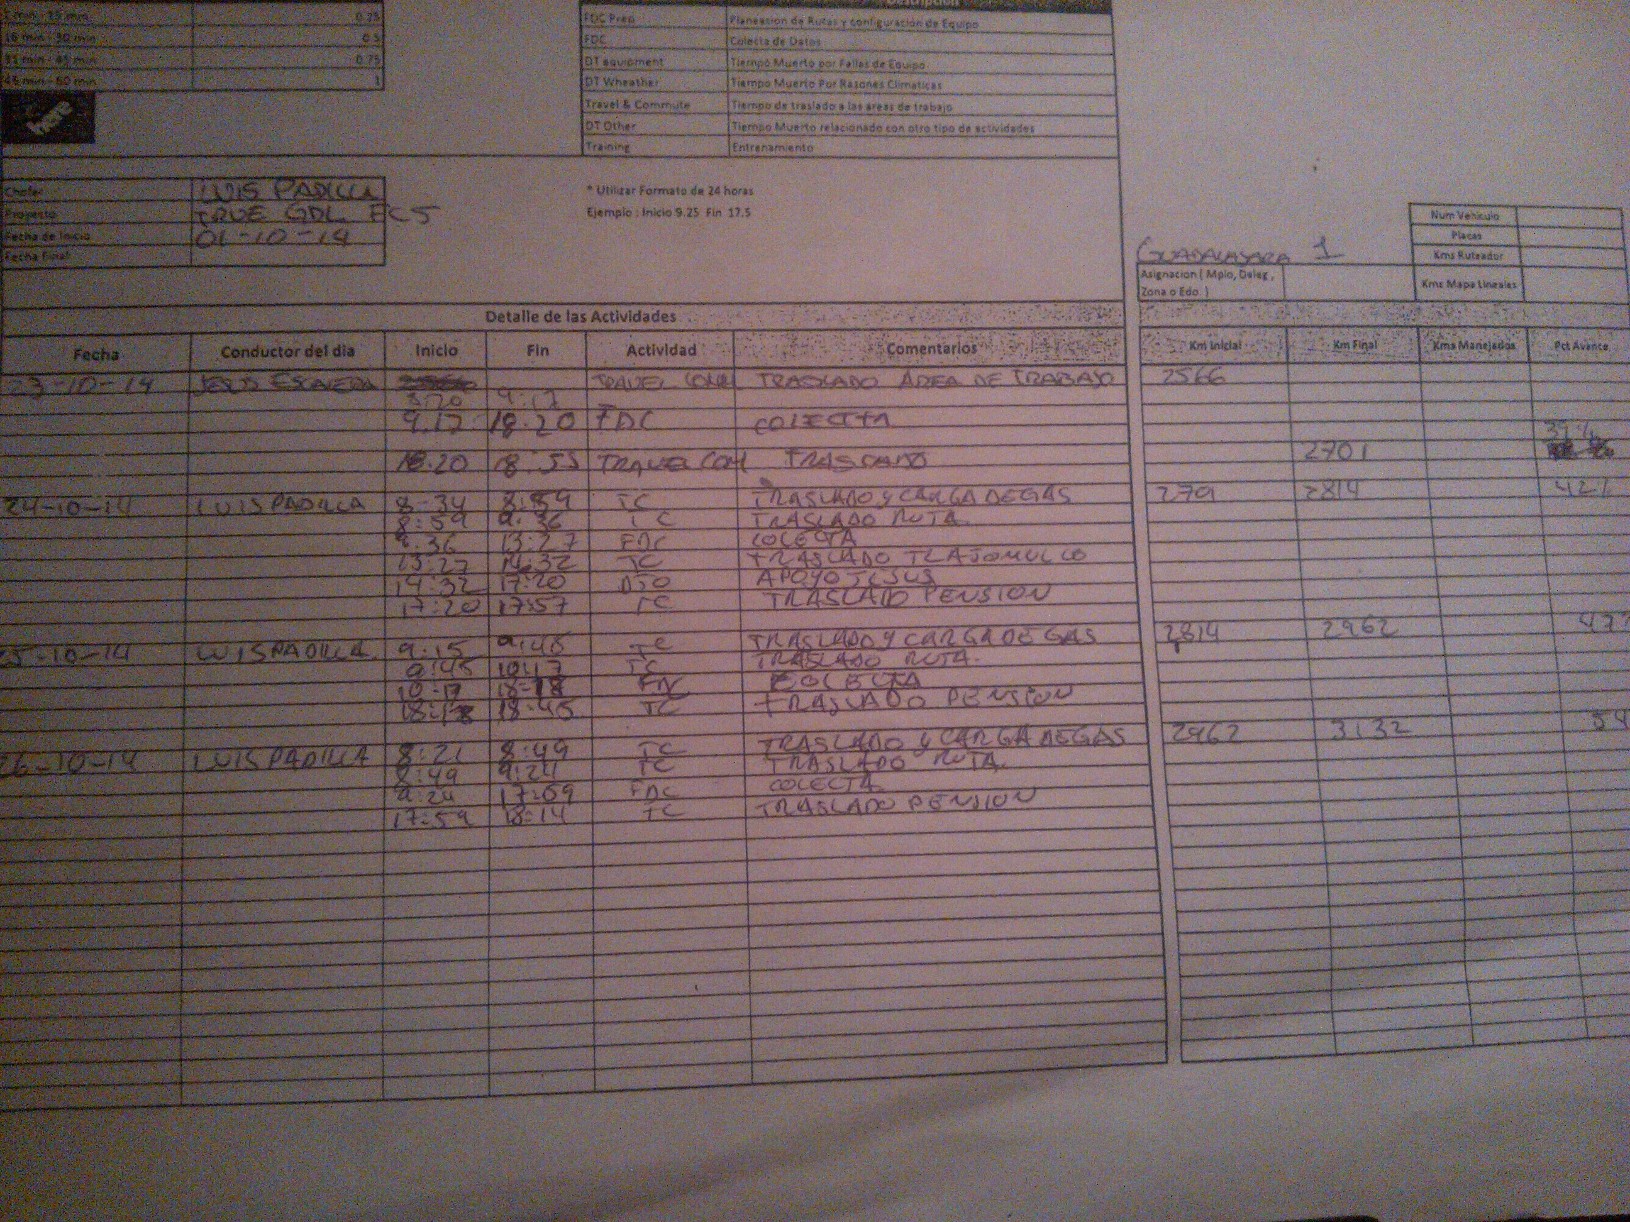 Descripción
1 min - 15 min 0.25
16 min - 30 min 0.5
31 min - 45 min 0.75
46 min - 60 min 1
FDC Prep Planeacion de Rutas y configuración de Equipo
FDC Colecta de Datos
DT equipment Tiempo Muerto por Fallas de Equipo
DT Wheather Tiempo Muerto Por Razones Climaticas
Travel & Commute Tiempo de traslado a las areas de trabajo
DT Other Tiempo Muerto relacionado con otro tipo de actividades
Training Entrenamiento
Chofer LUIS PADILLA
Proyecto TRUE GDL FC5
Fecha de Inicio 01-10-14
Fecha Final
* Utilizar Formato de 24 horas
Ejemplo : Inicio 9.25 Fin 17.5
Num Vehiculo
Placas
Kms Ruteador
Kms Mapa Lineales
GUADALAJARA 1
Asignacion ( Mpio, Deleg , Zona o Edo. )
Detalle de las Actividades
Fecha Conductor del dia Inicio Fin Actividad Comentarios Km Inicial Km Final Kms Manejados Pct Avance
23-10-14 ESCALERA TRAVEL COMM TRASLADO ÁREA DE TRABAJO 2566
8:20 9:17
9.17 18.20 FDC COLECTA
18.20 18:55 TRAVEL COM TRASLADO 2701 39%
24-10-14 LUIS PADILLA 8-34 8:59 TC TRASLADO Y CARGA DE GAS 2701 2814 42%
8:59 9:36 TC TRASLADO RUTA.
9:36 13:27 FDC COLECTA
13:27 14:32 TC TRASLADO TLAJOMULCO
14:32 17:20 DTO APOYO JESUS
17:20 17:57 TC TRASLADO PENSION
25-10-14 LUIS PADILLA 9:15 9:45 TC TRASLADO Y CARGA DE GAS 2814 2962 47
9:45 10:17 TC TRASLADO RUTA.
10-17 18-18 FDC COLECTA
18:18 18:45 TC TRASLADO PENSION
26-10-14 LUIS PADILLA 8:21 8:49 TC TRASLADO Y CARGA DE GAS 2962 3132 54
8:49 9:24 TC TRASLADO RUTA.
9:24 17:59 FDC COLECTA
17:59 18:14 TC TRASLADO PENSION